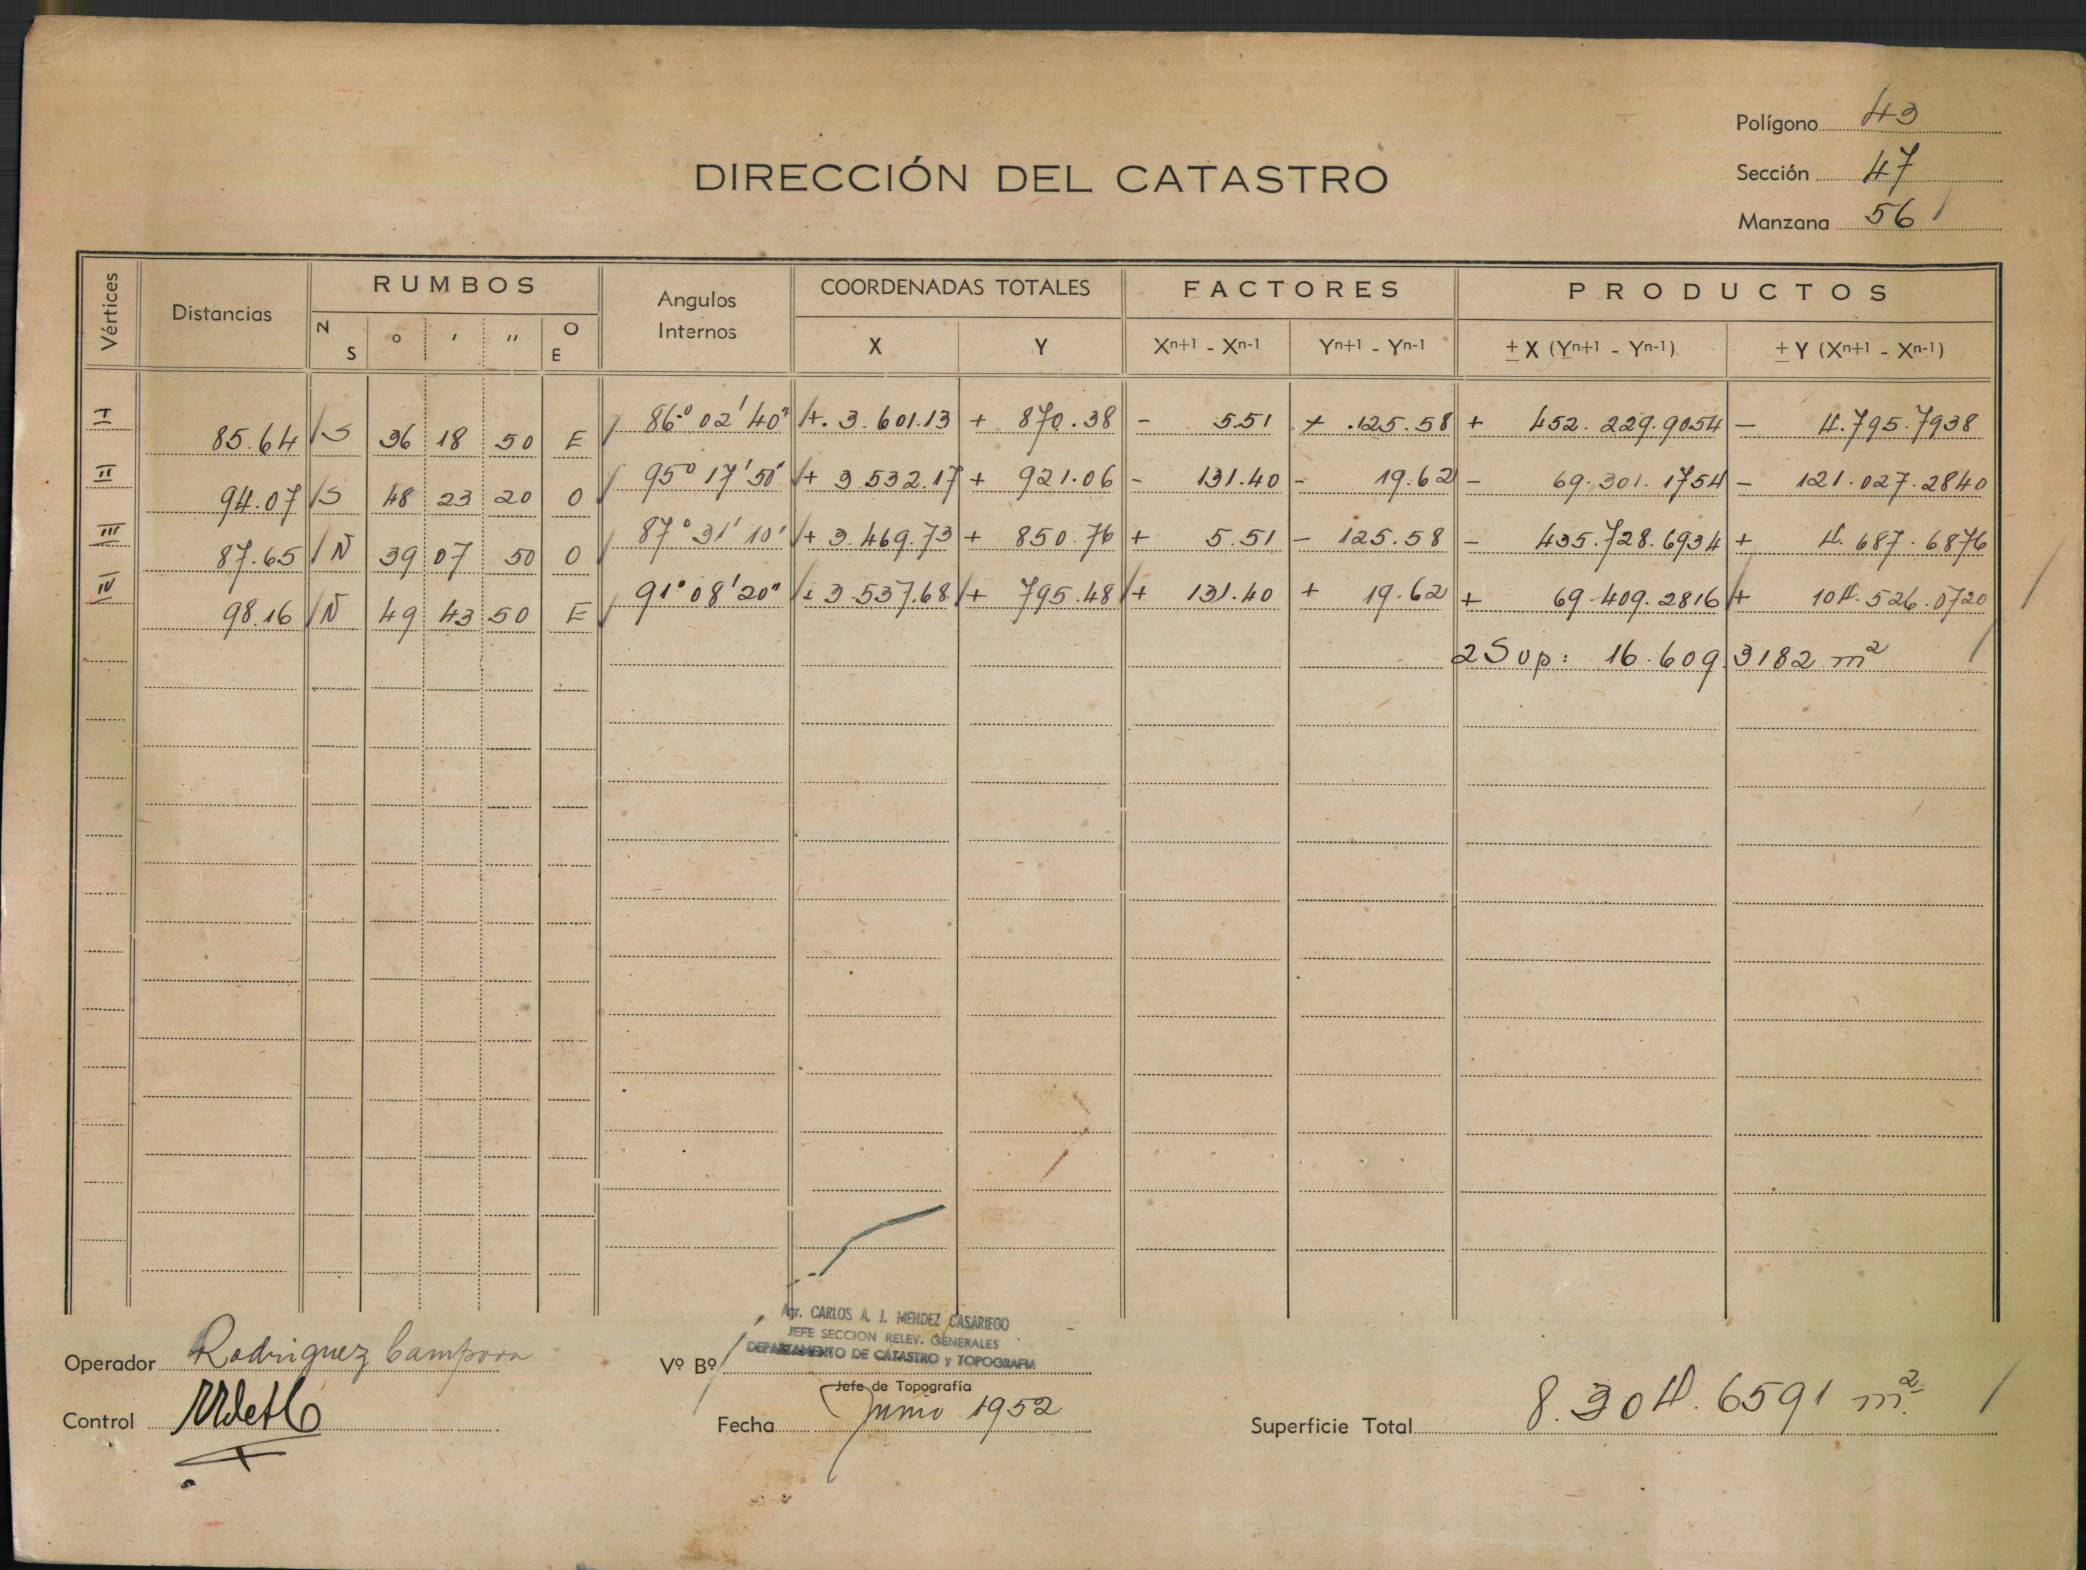 Polígono 43
DIRECCIÓN DEL CATASTRO
Sección 47
Manzana 56
Vértices Distancias RUMBOS N S ° ' " O E Angulos Internos COORDENADAS TOTALES X Y FACTORES Xn+1 - Xn-1 Yn+1 - Yn-1 PRODUCTOS ± X (Yn+1 - Yn-1) ± Y (Xn+1 - Xn-1)
I 85.64 S 36 18 50 E 86° 02' 40" + 3.601.13 + 870.38 - 5.51 + 125.58 + 452.229.9054 - 4.795.7938
II 94.07 S 48 23 20 O 95° 17' 50" + 3.532.17 + 921.06 - 131.40 - 19.62 - 69.301.1754 - 121.027.2840
III 87.65 N 39 07 50 O 87° 31' 10" + 3.469.73 + 850.76 + 5.51 - 125.58 - 435.728.6934 + 4.687.6876
IV 98.16 N 49 43 50 E 91° 08' 20" + 3.537.68 + 795.48 + 131.40 + 19.62 + 69.409.2816 + 104.526.0720
2Sup: 16.609.3182 m²
Agr. CARLOS A. J. MENDEZ CASARIEGO
JEFE SECCION RELEV. GENERALES
DEPARTAMENTO DE CATASTRO y TOPOGRAFIA
Operador Rodriguez Campora Vº Bº
Jefe de Topografía
Control Fecha Junio 1952 Superficie Total 8.304.6591 m²